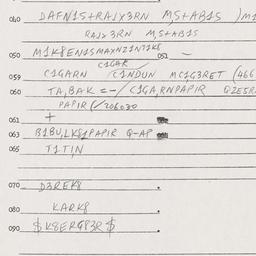 040 DAFN1S+RAJX3RN M,S+AB1S )M1
RAJX3RN M,S+AB1S
050 M1K8EN1SMAXN21N71K8 051 —
C1GAR
059 C1GARN C1NDUN MC1G3RET (466
060 TA,BAK =-/ C1GA,RNPAPIR Q2E5R
PAPIR (/206030
061 +
063 B1BU,LK81PAPIR Q-AP
065 T1T,N
070 D3REK8
080 KARK8
090 $K8ERG83R$